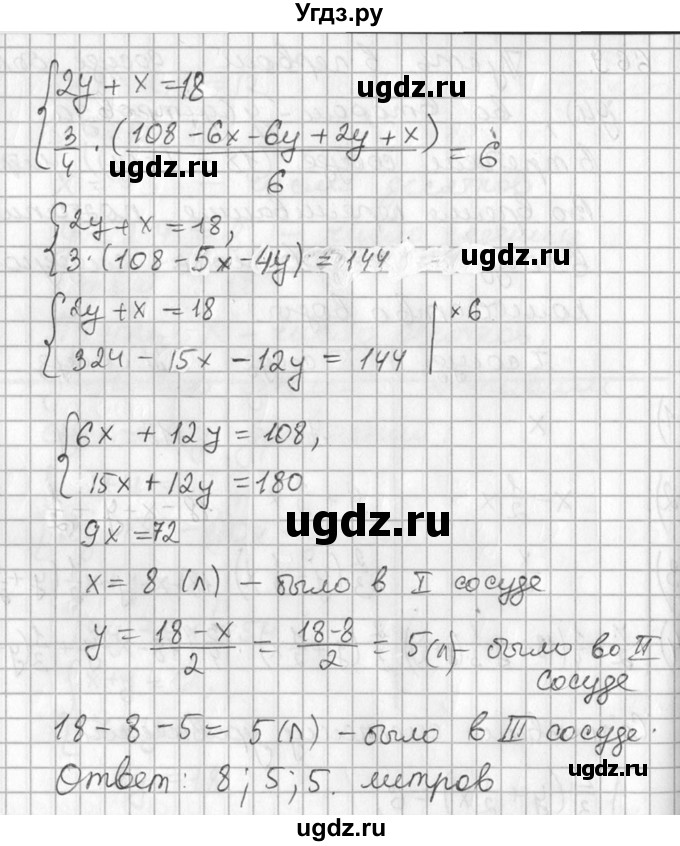 Угдз.ру
2y + x = 18
ugdz.ru
3/4 · (108 - 6x - 6y + 2y + x)/6 = 6
ugdz.ru
2y + x = 18,
3 · (108 - 5x - 4y) = 144
ugdz.ru
2y + x = 18 | × 6
324 - 15x - 12y = 144
6x + 12y = 108,
15x + 12y = 180
ugdz.ru
9x = 72
x = 8 (л) - было в I сосуде
y = (18 - x)/2 = (18 - 8)/2 = 5 (л) - было во II
сосуде
18 - 8 - 5 = 5 (л) - было в III сосуде.
Ответ: 8; 5; 5. литров
ugdz.ru
ugdz.ru